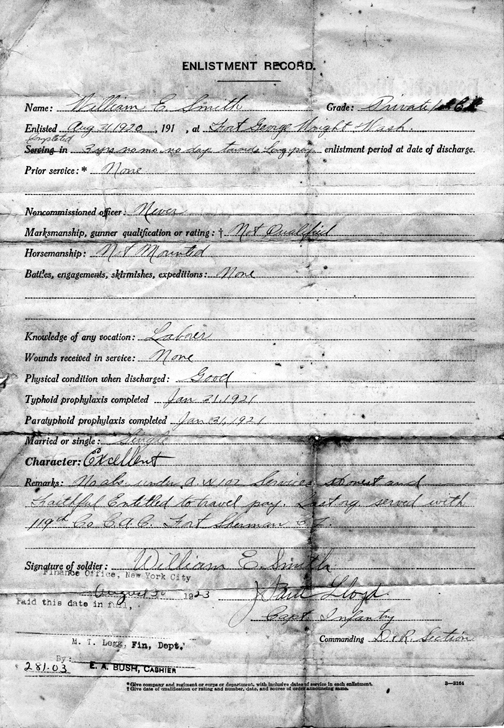 ENLISTMENT RECORD.
Name: William E. Smith Grade: Private 1st Cl
Enlisted Aug 4, 1920, 191 , at Fort George Wright Wash.
Completed
Serving in 3 yrs no mo. no day towards Long pay enlistment period at date of discharge.
Prior service: * None
Noncommissioned officer: Never
Marksmanship, gunner qualification or rating: † Not Qualified
Horsemanship: Not Mounted
Battles, engagements, skirmishes, expeditions: None
Knowledge of any vocation: Laborer
Wounds received in service: None
Physical condition when discharged: Good
Typhoid prophylaxis completed Jan 21, 1921
Paratyphoid prophylaxis completed Jan 31, 1921
Married or single: Single
Character: Excellent
Remarks: No abs. under a.w 107 Service honest and
Faithful Entitled to travel pay. Last org. served with
119th Co. C.A.C. Fort Sherman C.Z.
Signature of soldier: William E. Smith
Finance Office, New York City
August 3 1923 J Paul Lloyd
Paid this date in full,
Capt. Infantry
M. T. Legg, Fin, Dept. Commanding D.&R. Section
By:
281.03 E. A. BUSH, CASHIER
*Give company and regiment or corps or department, with inclusive dates of service in each enlistment. 3—3164
†Give date of qualification or rating and number, date, and source of order announcing same.